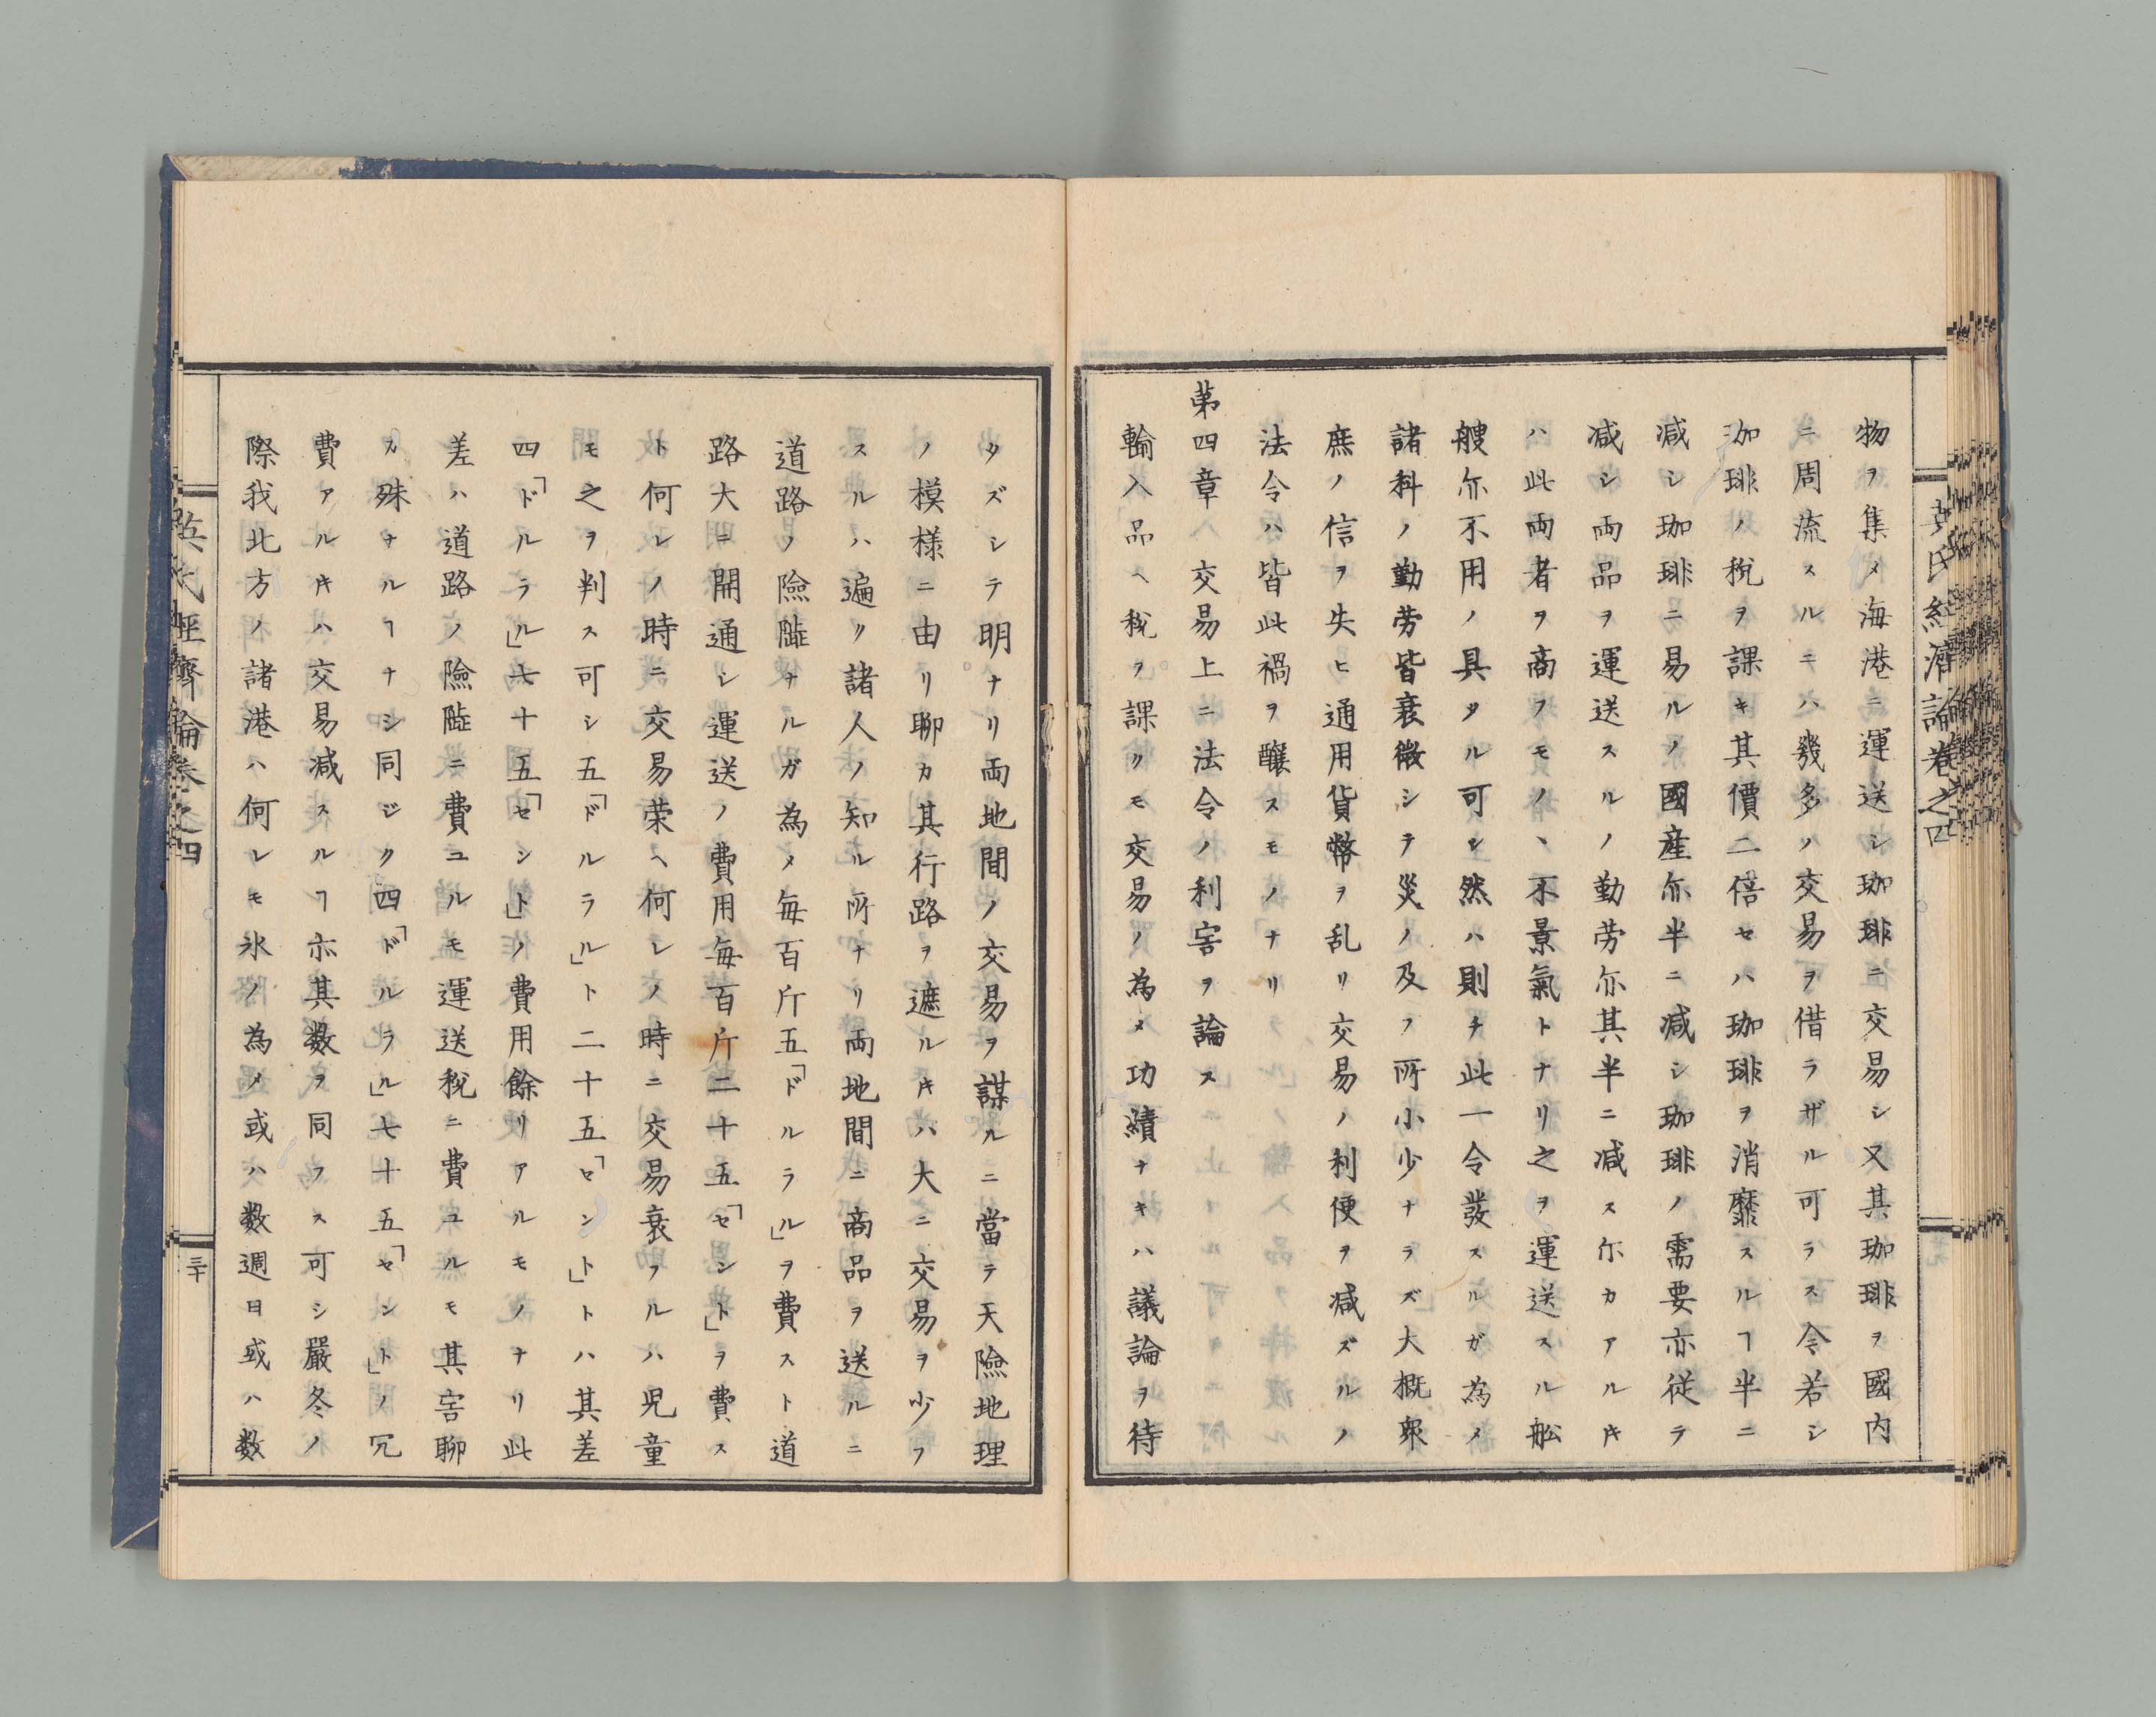 英氏經濟論卷之四
物ヲ集メ海港ニ運送シ珈琲ニ交易シ又其珈琲ヲ國内
ニ周流スルニハ幾多ノ交易ヲ借ラザル可ラス令若シ
珈琲ノ稅ヲ課キ其價二倍セハ珈琲ヲ消靡スルヿ半ニ
減シ珈琲ニ易ルノ國産亦半ニ減シ珈琲ノ需要亦従テ
減シ両品ヲ運送スルノ勤労亦其半ニ減ス尓カアルキ
ハ此両者ヲ商フモノヽ不景氣トナリ之ヲ運送スル舩
艘亦不用ノ具タル可シ然ハ則チ此一令發スルガ為メ
諸科ノ勤労皆衰微シテ災ノ及フ所小少ナラズ大概衆
庶ノ信ヲ失ヒ通用貨幣ヲ乱リ交易ノ利便ヲ減ズルノ
法令ハ皆此禍ヲ醸スモノナリ
第四章　交易上ニ法令ノ利害ヲ論ス
輸入品ヘ稅ヲ課クモ交易ノ為メ功績ナキハ議論ヲ待
タズシテ明ナリ両地間ノ交易ヲ謀ルニ當テ天險地理
ノ模様ニ由リ聊カ其行路ヲ遮ルキハ大ニ交易ヲ少フ
スルハ遍ク諸人ノ知ル所ナリ両地間ニ商品ヲ送ルニ
道路ノ險隘ナルガ為メ毎百斤五「ドルラル」ヲ費スト道
路大ニ開通シ運送ノ費用毎百斤二十五「セント」ヲ費ス
ト何レノ時ニ交易荣ヘ何レノ時ニ交易衰フルハ児童
モ之ヲ判ス可シ五「ドルラル」ト二十五「セント」トハ其差
四「ドルラル」七十五「セント」ノ費用餘リアルモノナリ此
差ハ道路ノ險隘ニ費ユルモ運送稅ニ費ユルモ其害聊
カ殊ナルヿナシ同ジク四「ドルラル」七十五「セント」ノ冗
費アルキハ交易減スルヿ亦其数ヲ同フス可シ嚴冬ノ
際我北方ノ諸港ハ何レモ氷ノ為メ或ハ数週日或ハ数
英氏經濟論卷之四
三十